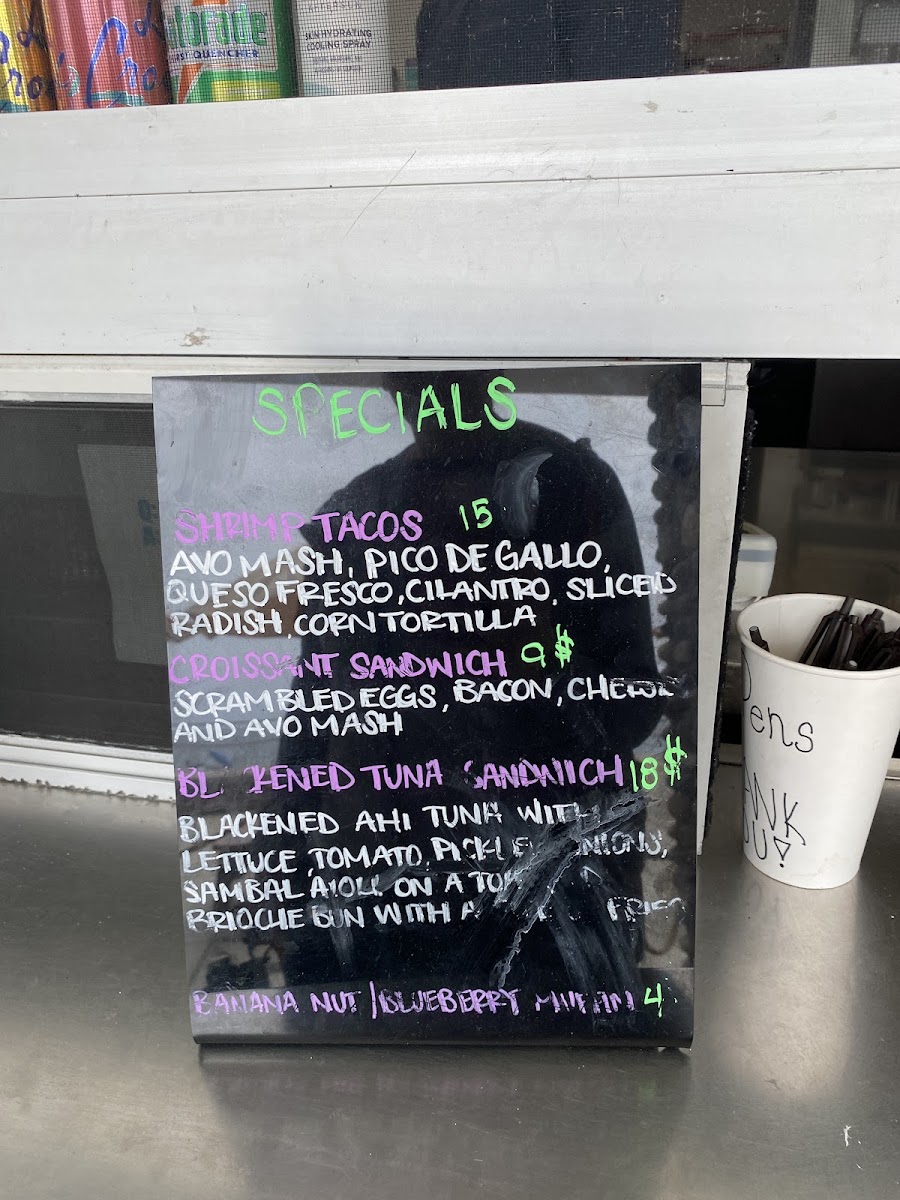 atorade
ST QUENCHER
HYDRATING
COOLING SPRAY
SPECIALS
SHRIMP TACOS 15
AVO MASH, PICO DE GALLO,
QUESO FRESCO, CILANTRO, SLICED
RADISH, CORN TORTILLA
CROISSANT SANDWICH 9$
SCRAMBLED EGGS, BACON, CHEESE
AND AVO MASH
BL KENED TUNA SANDWICH 18$
BLACKENED AHI TUNA WITH
LETTUCE, TOMATO, PICKLE NIONS,
SAMBAL AIOLI ON A TO
BRIOCHE BUN WITH A FRIES
BANANA NUT / BLUEBERRY MUFFIN 4
ens
ANK
OU!